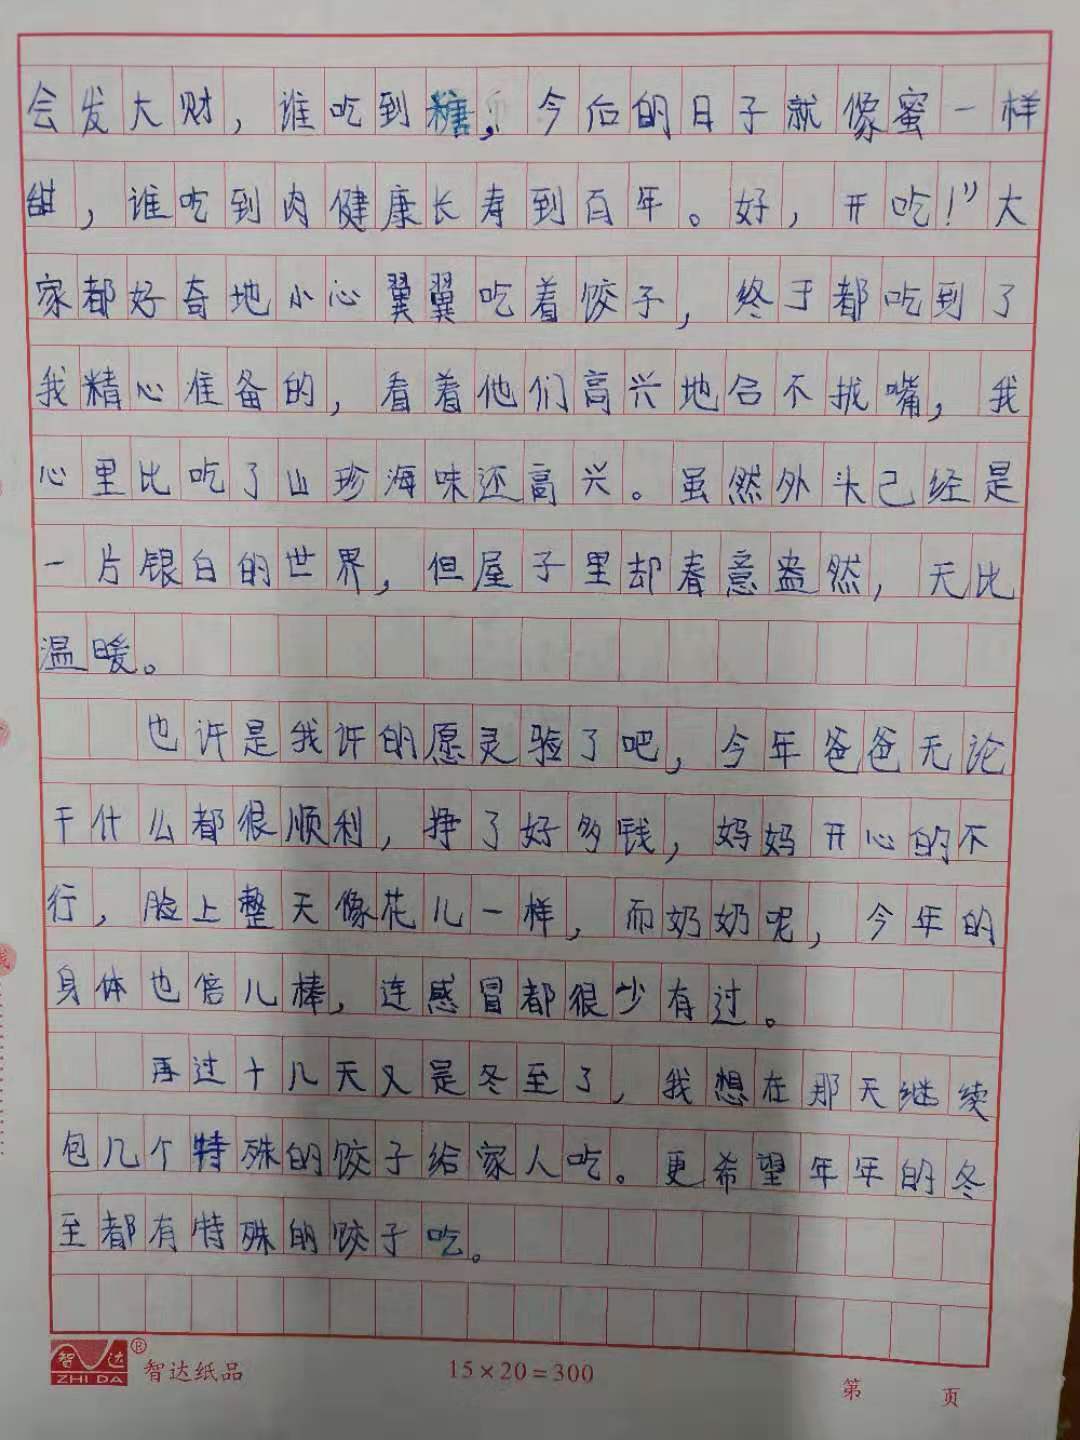 会发大财，谁吃到糖，今后的日子就像蜜一样
甜，谁吃到肉健康长寿到百年。好，开吃！”大
家都好奇地小心翼翼吃着饺子，终于都吃到了
我精心准备的，看着他们高兴地合不拢嘴，我
心里比吃了山珍海味还高兴。虽然外头已经是
一片银白的世界，但屋子里却春意盎然，无比
温暖。
也许是我许的愿灵验了吧，今年爸爸无论
干什么都很顺利，挣了好多钱，妈妈开心的不
行，脸上整天像花儿一样，而奶奶呢，今年的
身体也倍儿棒，连感冒都很少有过。
再过十几天又是冬至了，我想在那天继续
包几个特殊的饺子给家人吃。更希望年年的冬
至都有特殊的饺子吃。
智达 ® 智达纸品 15×20=300 第 页
ZHI DA